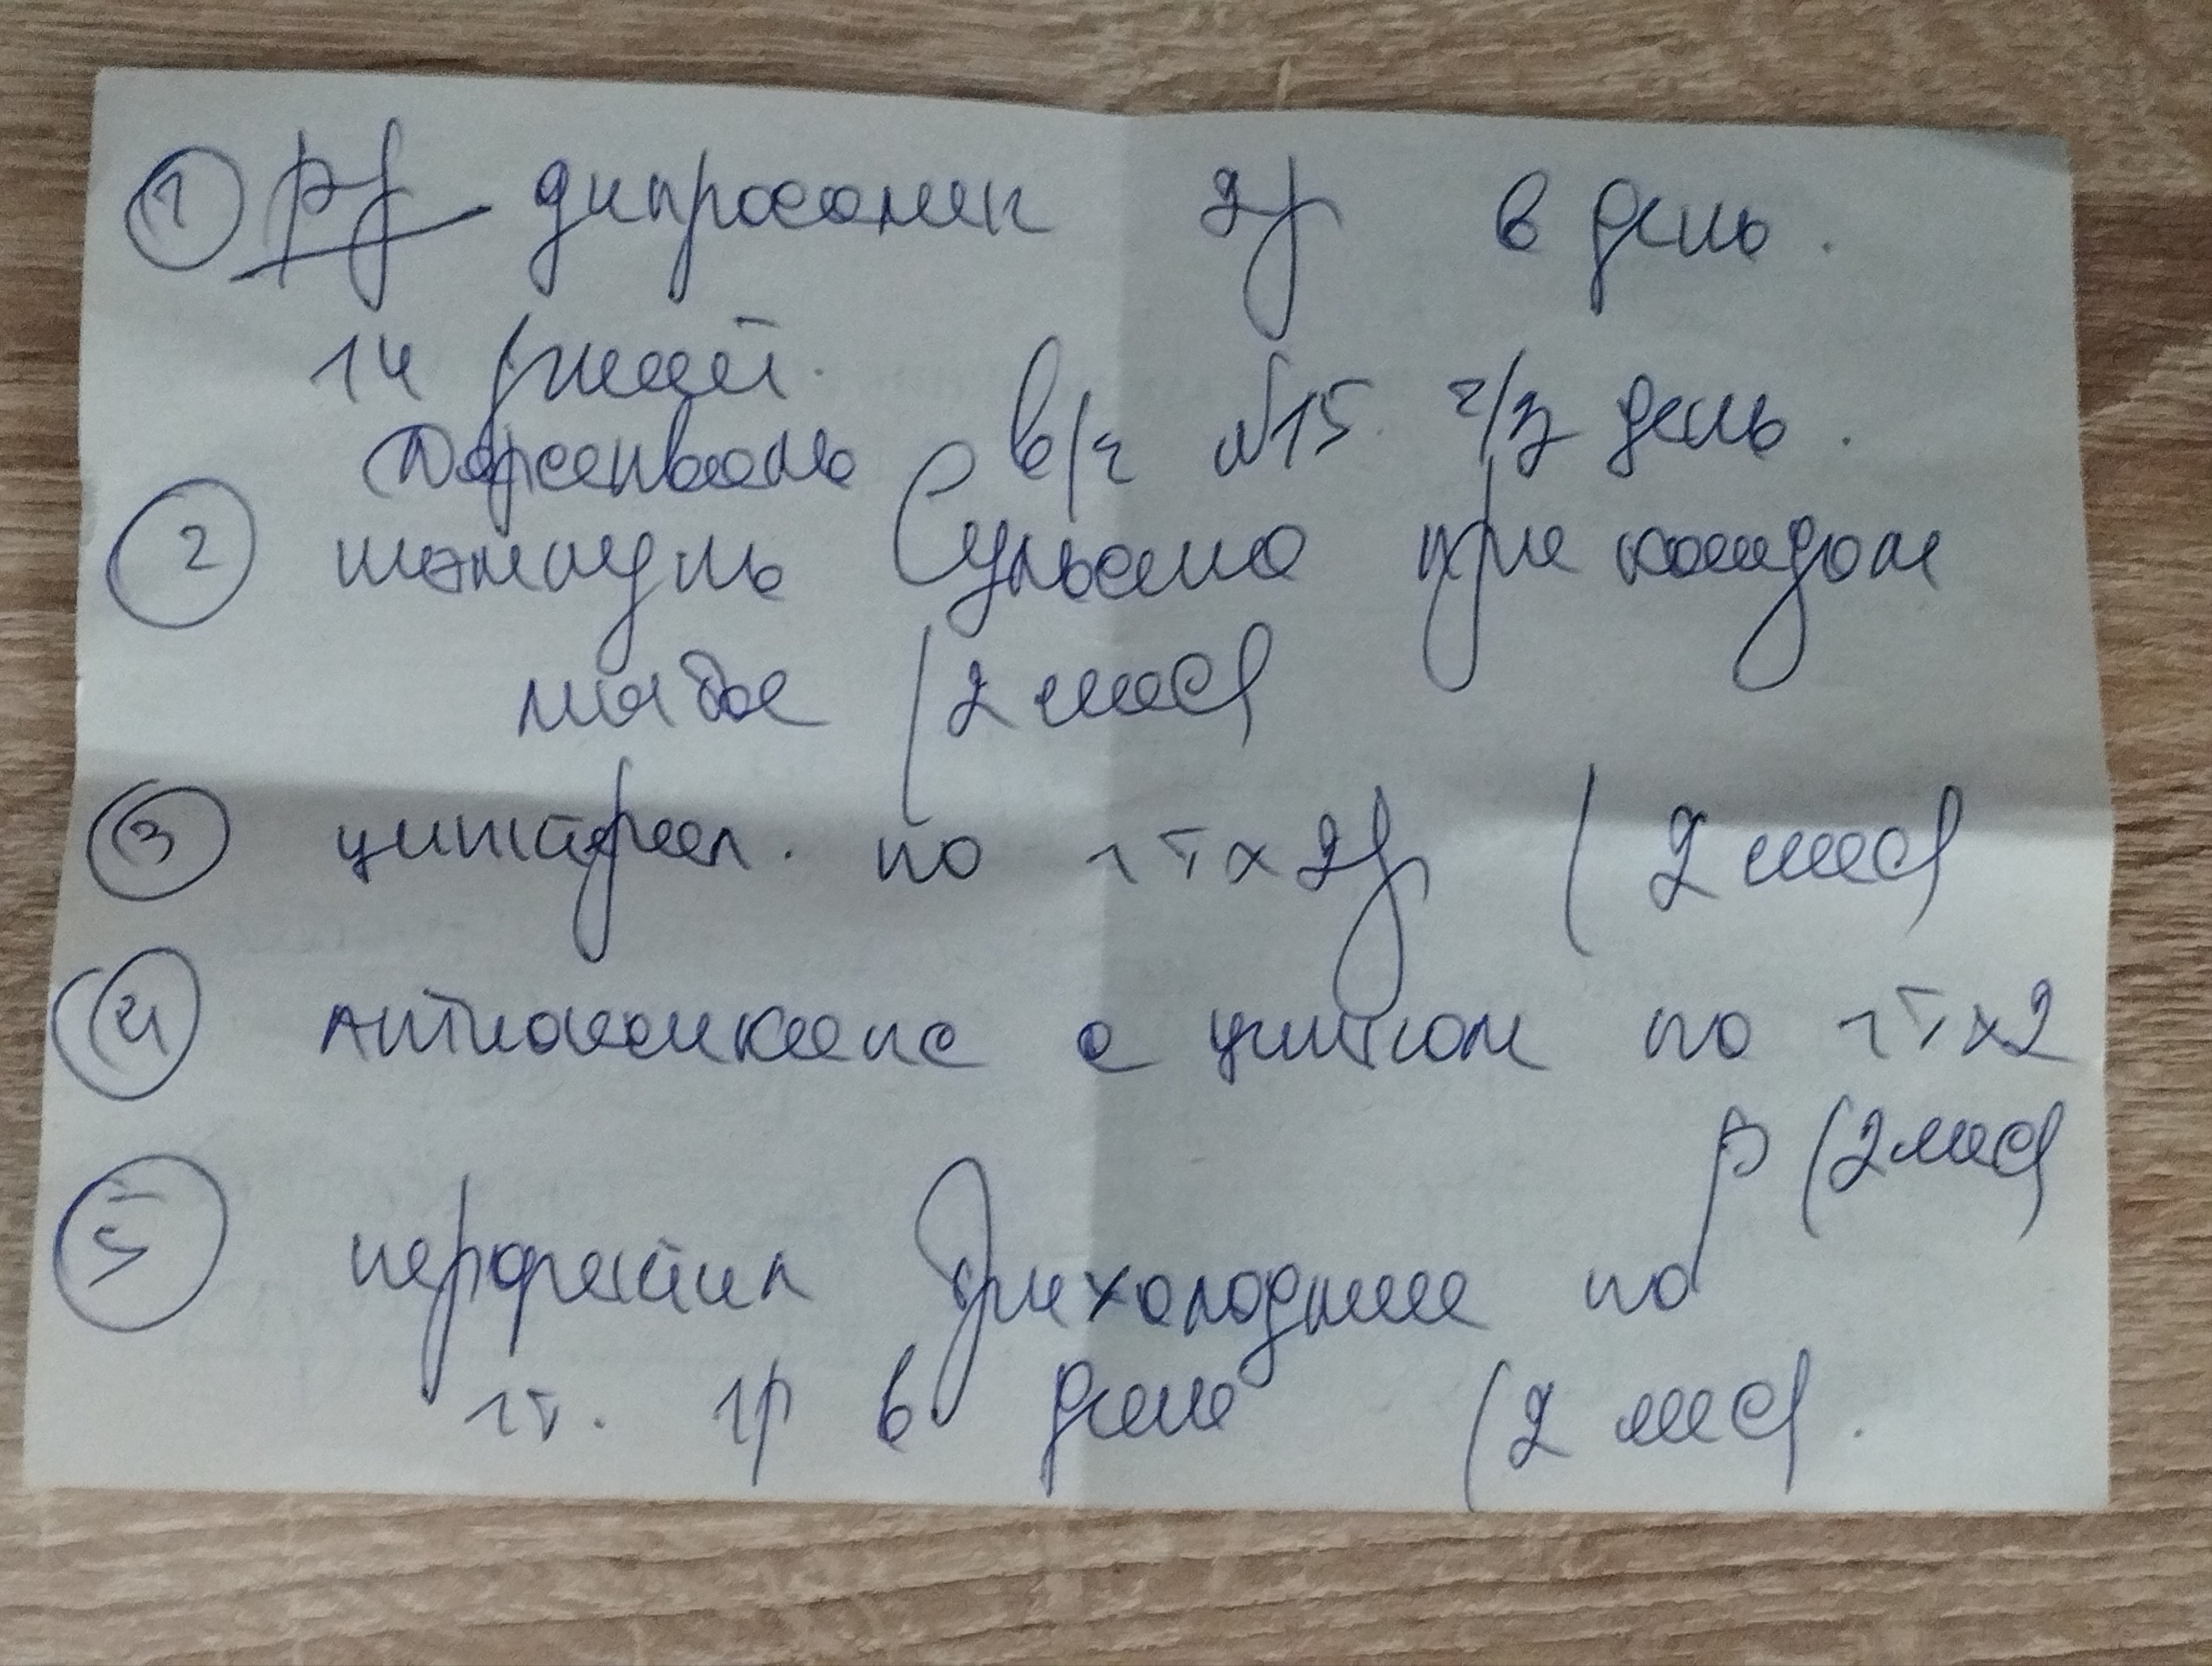 ① Rp дипросалик 2р в день.
14 дней.
Дарсенваль в/ч №15 ч/з день.
② шампунь Сульсена при каждом
мытье (2 мес)
③ цинктерал. по 1т х 2р (2 мес)
④ Антиоксикапс с цинком по 1т х 2
р (2 мес)
⑤ перфектил Трихолоджик по
1т. 1р в день (2 мес).